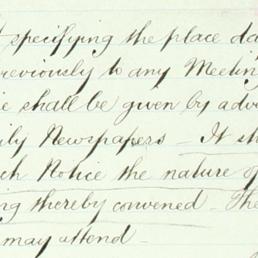 specifying the place da
reviously to any Meetin
ie shall be given by adve
ily Newspapers - It sh
ch Notice the nature of
ng thereby convened - The
may attend -